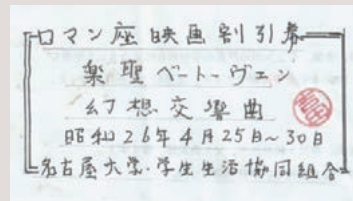 ロマン座映画割引券
楽聖ベートーヴェン
幻想交響曲
昭和26年4月25日〜30日
名古屋大学・学生生活協同組合